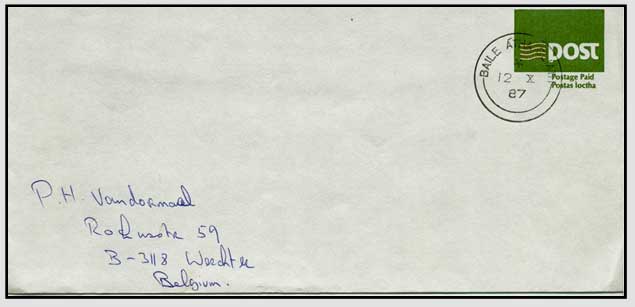 BAILE
12 X
87
POST
Postage Paid
Postas Ioctha
P.H. Vandormael
59
B-3118 Werchter
Belgium.